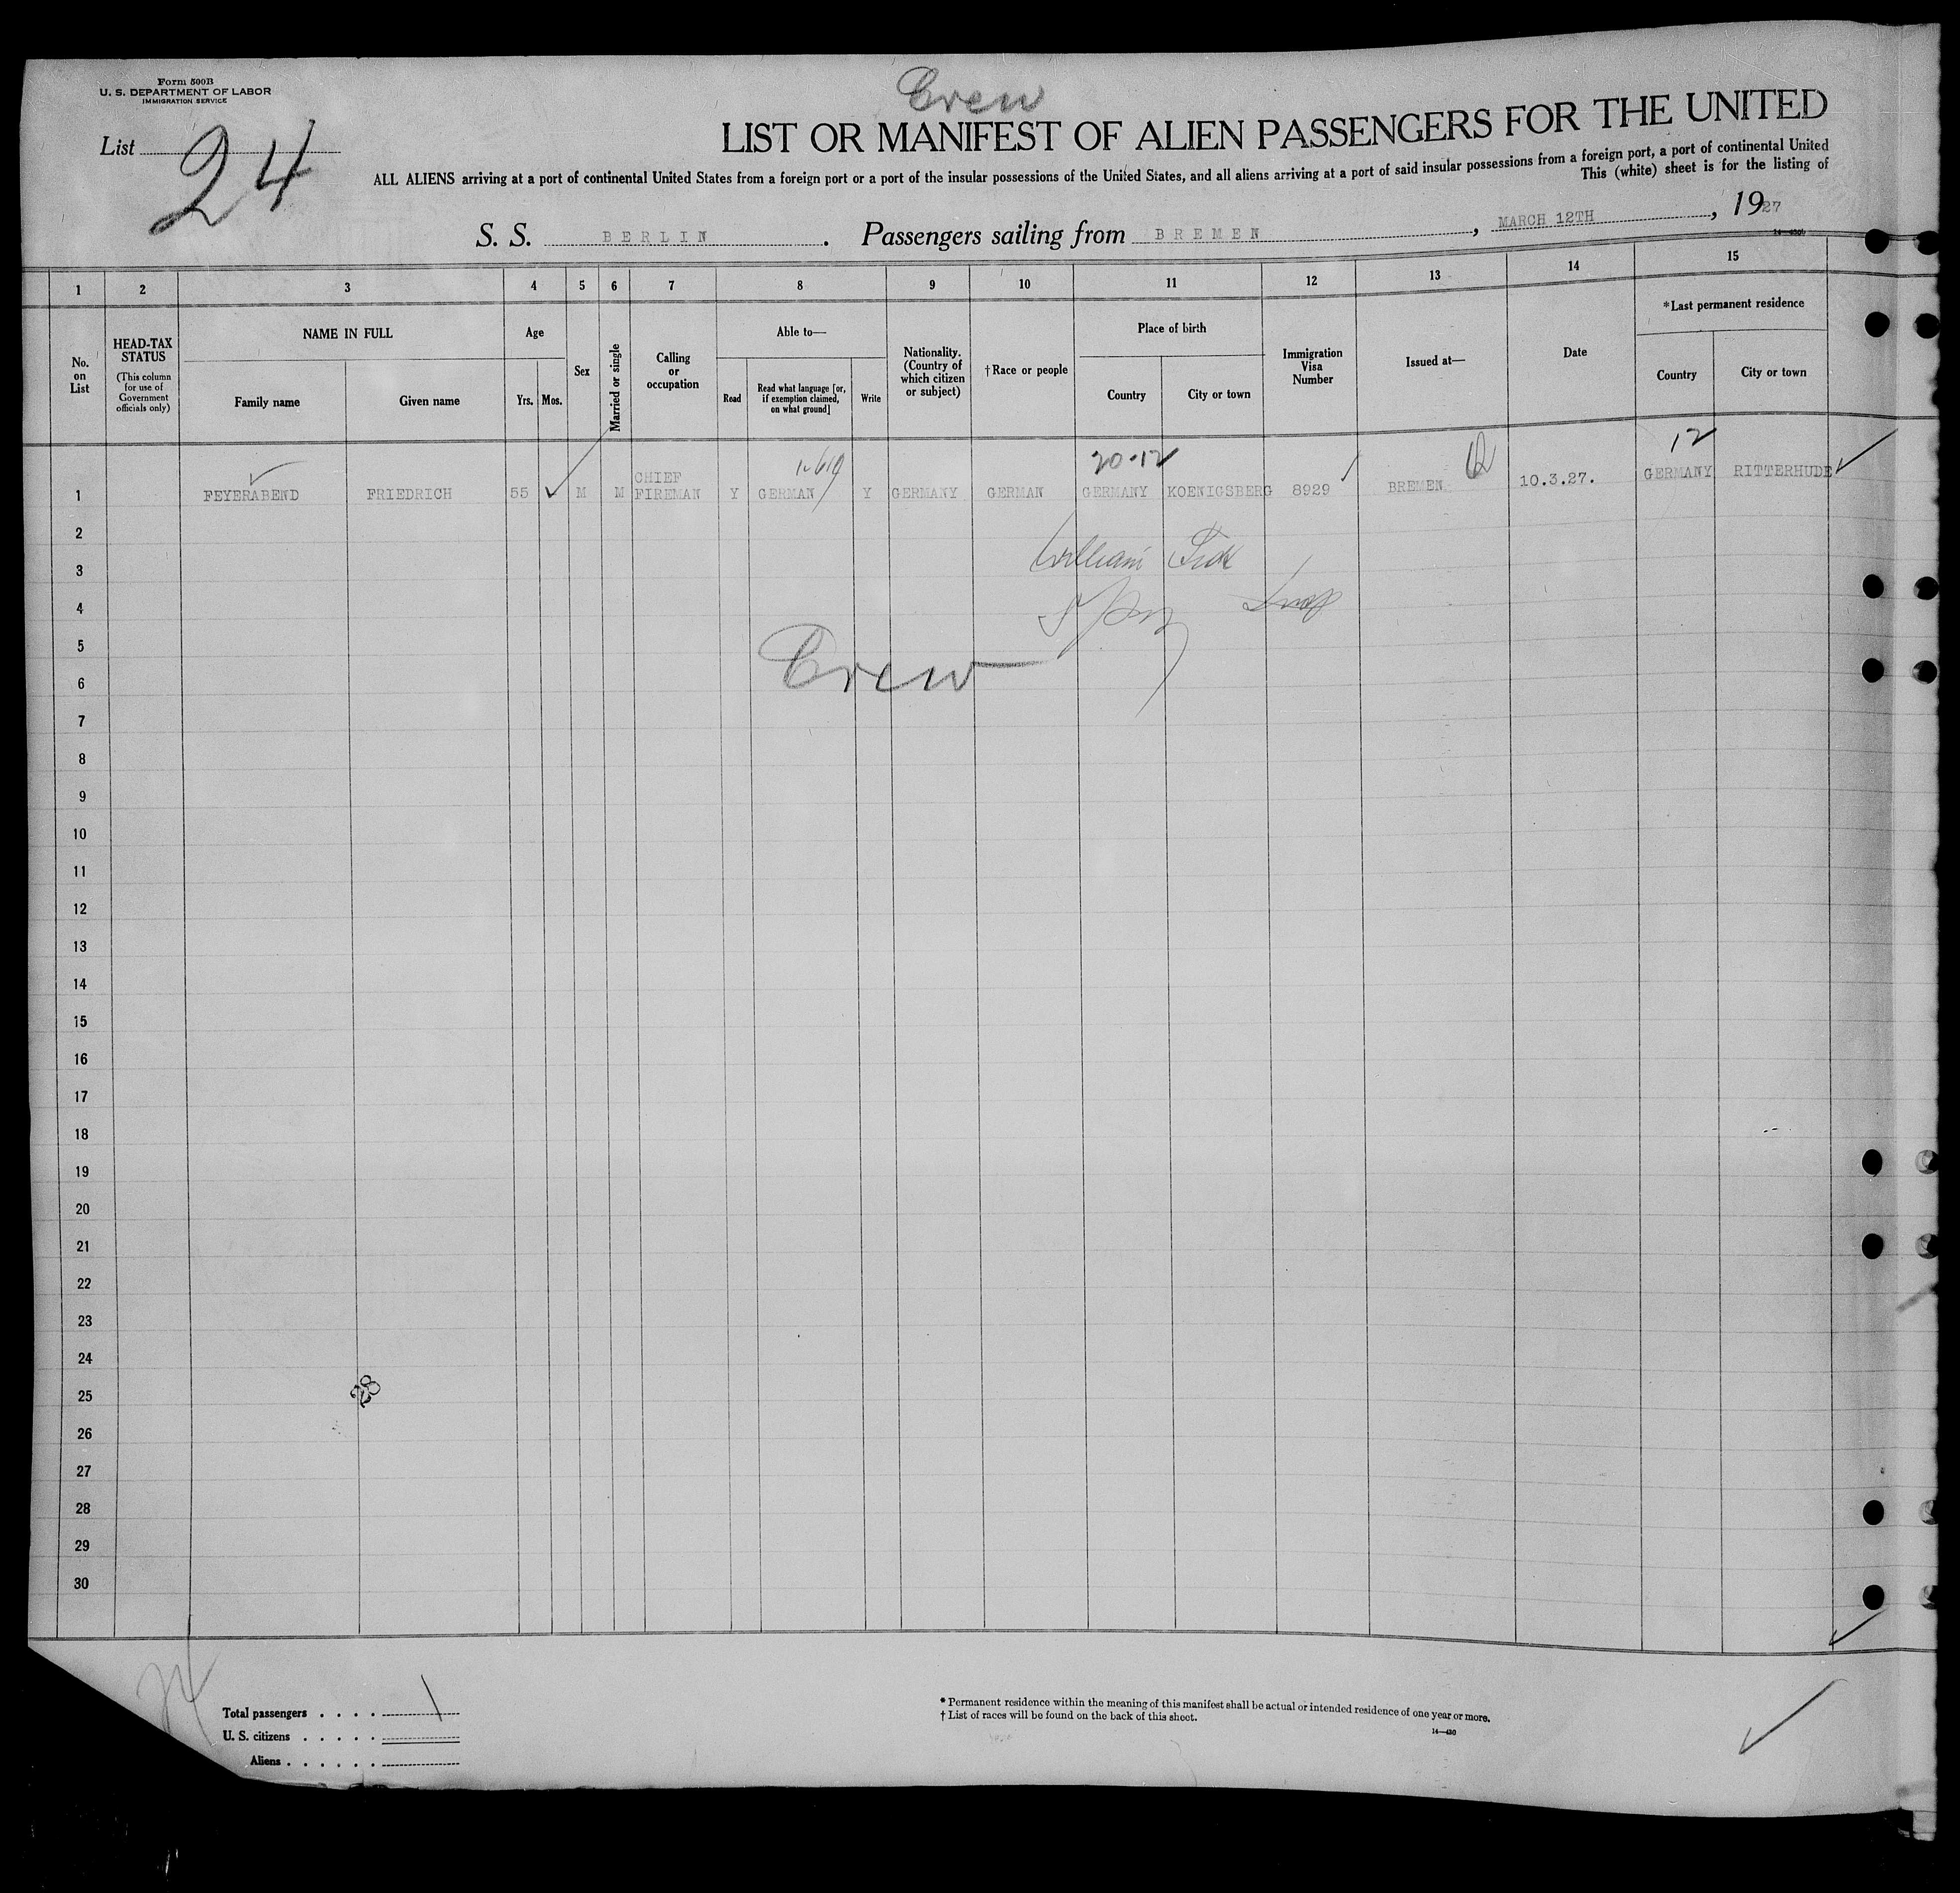 Form 500B
U. S. DEPARTMENT OF LABOR
IMMIGRATION SERVICE
Crew
List 24
LIST OR MANIFEST OF ALIEN PASSENGERS FOR THE UNITED
ALL ALIENS arriving at a port of continental United States from a foreign port or a port of the insular possessions of the United States, and all aliens arriving at a port of said insular possessions from a foreign port, a port of continental United
This (white) sheet is for the listing of
S. S. BERLIN . Passengers sailing from BREMEN , MARCH 12TH , 1927
1 2 3 4 5 6 7 8 9 10 11 12 13 14 15
No. on List
HEAD-TAX STATUS (This column for use of Government officials only)
NAME IN FULL
Family name Given name
Age
Yrs. Mos.
Sex
Married or single
Calling or occupation
Able to—
Read
Read what language [or, if exemption claimed, on what ground]
Write
Nationality. (Country of which citizen or subject)
†Race or people
Place of birth
Country City or town
Immigration Visa Number
Issued at—
Date
*Last permanent residence
Country City or town
20-12 12
1 FEYERABEND FRIEDRICH 55 M M CHIEF FIREMAN Y GERMAN Y GERMANY GERMAN GERMANY KOENIGSBERG 8929 BREMEN 10.3.27. GERMANY RITTERHUDE
2
William
3
4
5
Crew
6
7
8
9
10
11
12
13
14
15
16
17
18
19
20
21
22
23
24
25 28
26
27
28
29
30
Total passengers . . . . 1
U. S. citizens . . . . .
Aliens . . . . . .
* Permanent residence within the meaning of this manifest shall be actual or intended residence of one year or more.
† List of races will be found on the back of this sheet.
14—430